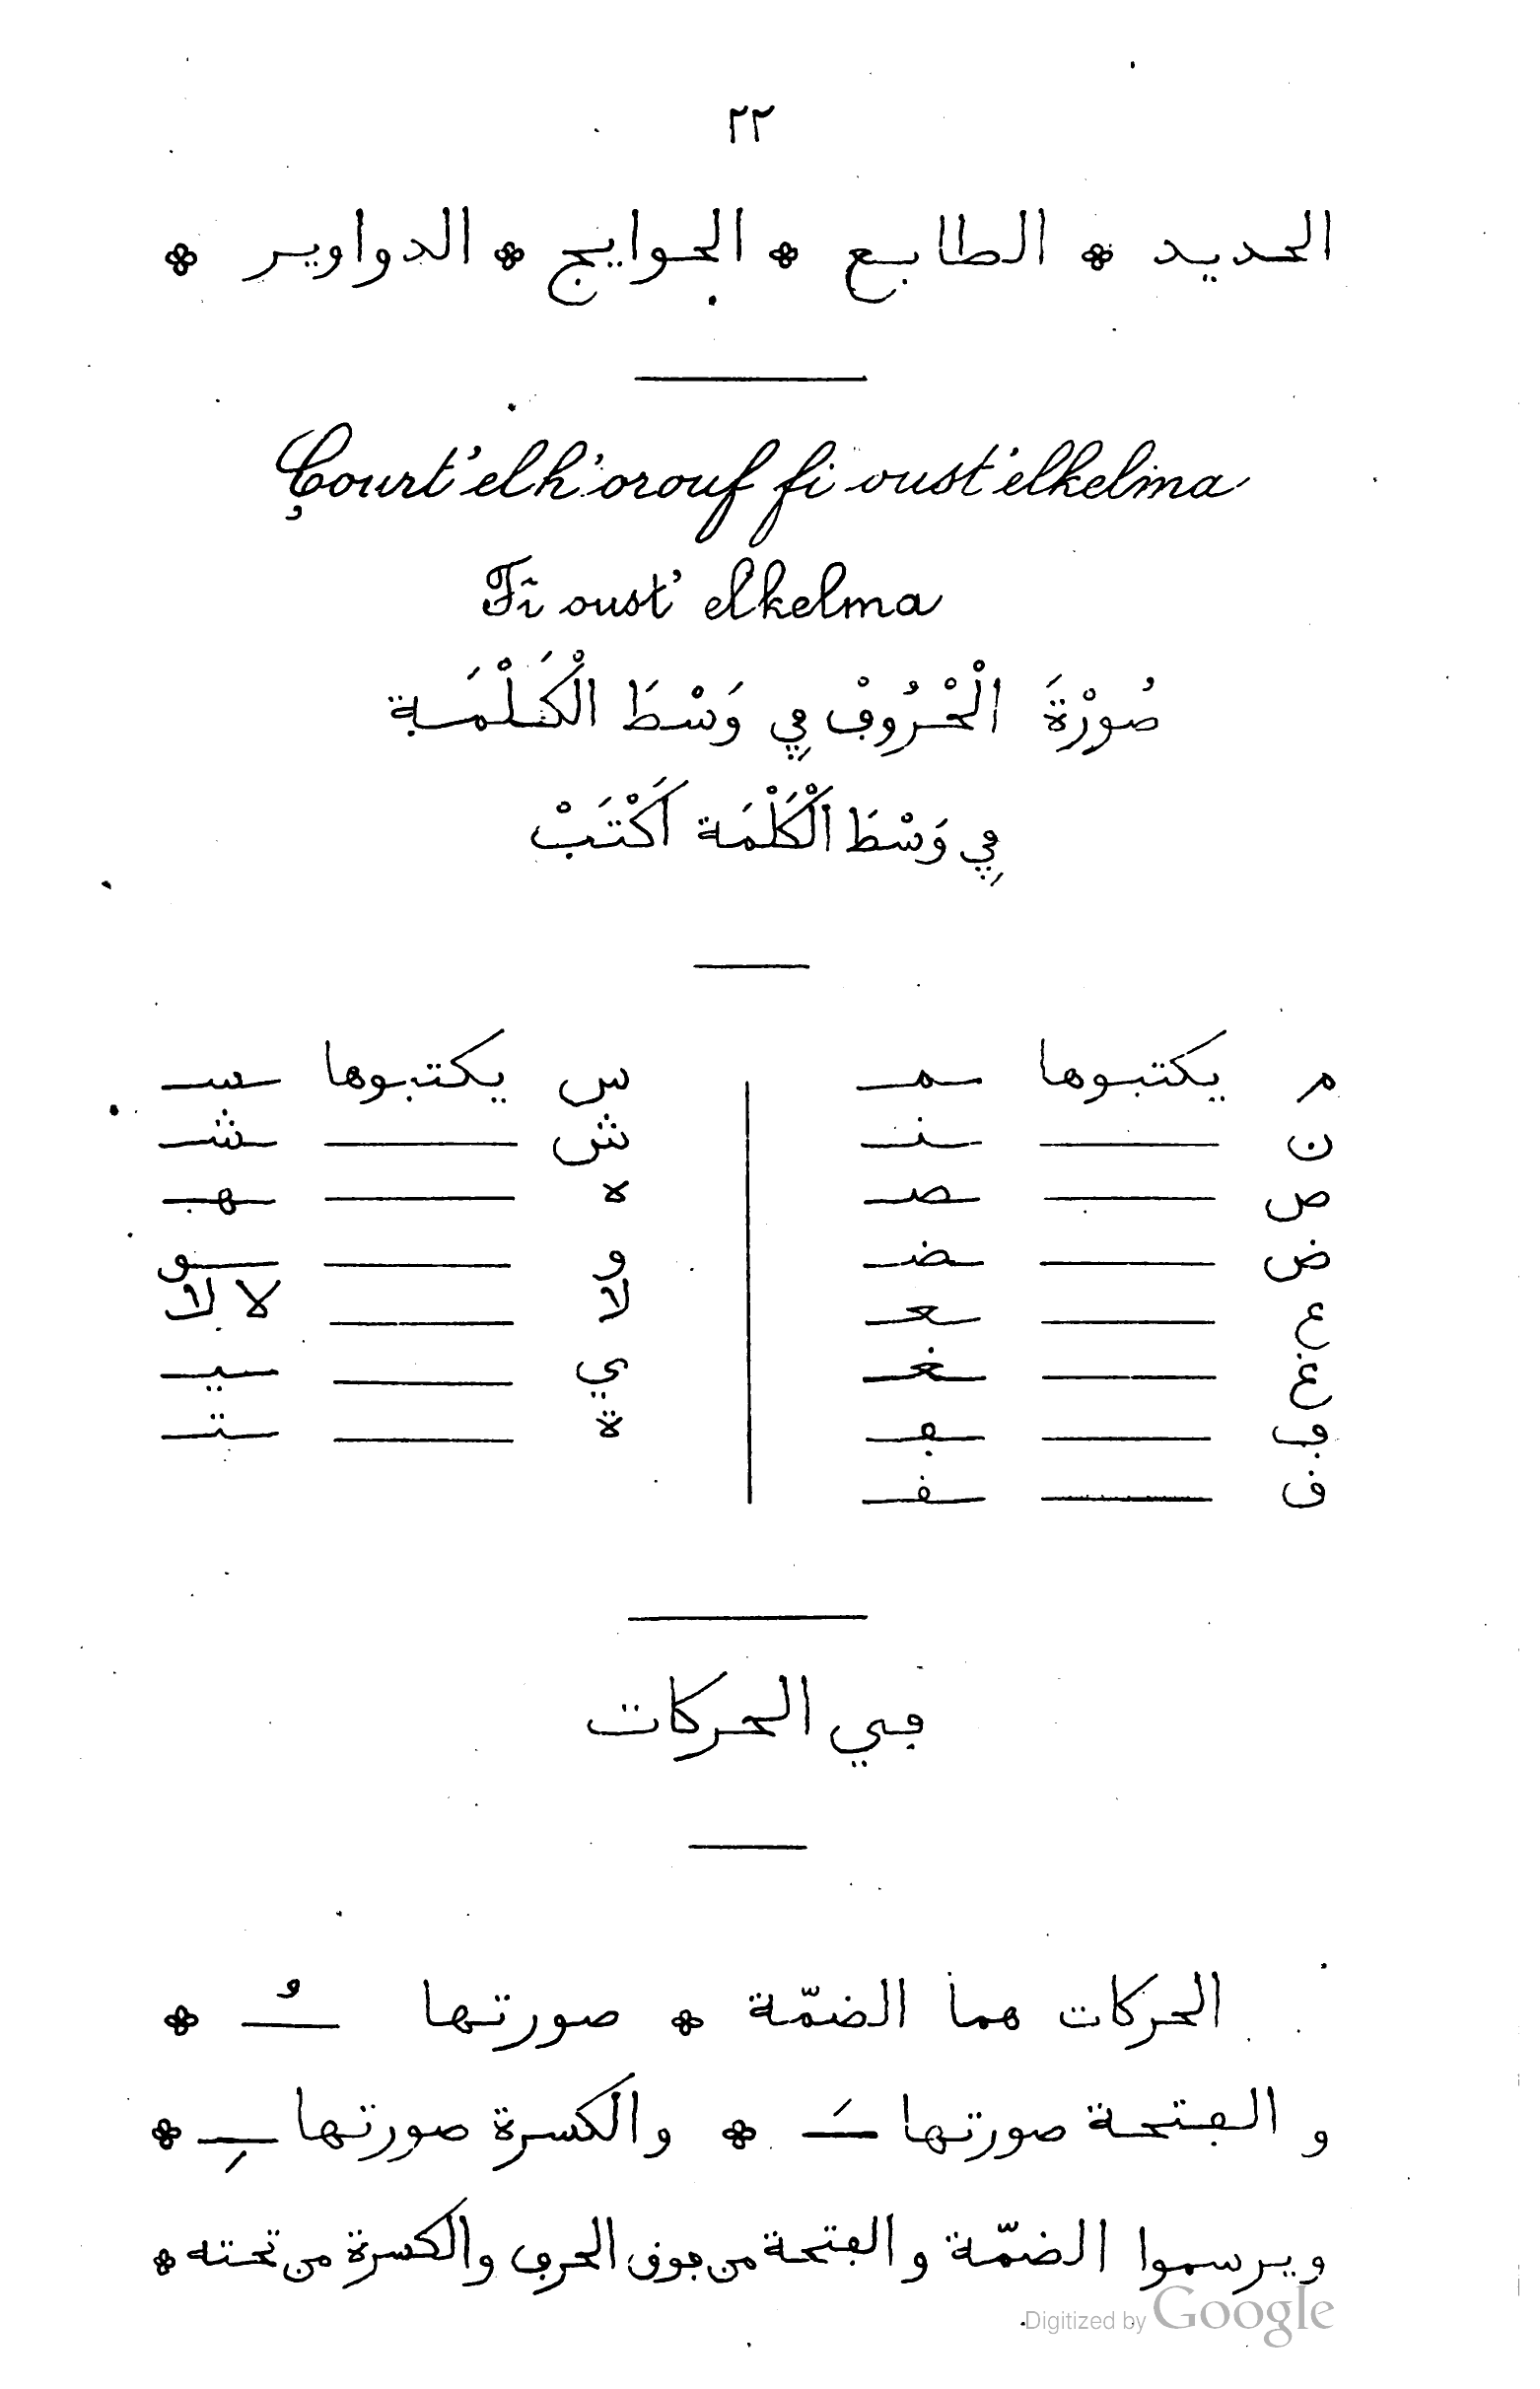 ٢٢
الحديد * الطابـع * الجـوايج * الدواويـر *
Çourt' el h'orouf fi oust' elkelma
Fî oust' elkelma
صُورْةَ الْحْرُوڢْ ڢِي وَسْطَ الْكَلْمَـة
ڢِي وَسْطَ الْكَلْمَة اَكْتَبْ
م يكتبـوها ـمـ
ن ـنـ
ص ـصـ
ض ـضـ
ع ـعـ
غ ـغـ
ڢ ـڢـ
ف ـفـ
س يكتبـوها ـسـ
ش ـشـ
ه ـهـ
و ـو
لا لا ـلا
ي ـيـ
ة ـتـ
ڢـي الحركات
الحركات هما الضمّة * صورتـها ـُ *
و الڢـتحـة صورتـها ـَ * والكسرة صورتـها ـِ *
ويـرسـموا الضمّـة والڢتحـة من ڢوف الحرڢ والكسرة من تحـته *
Digitized by Google